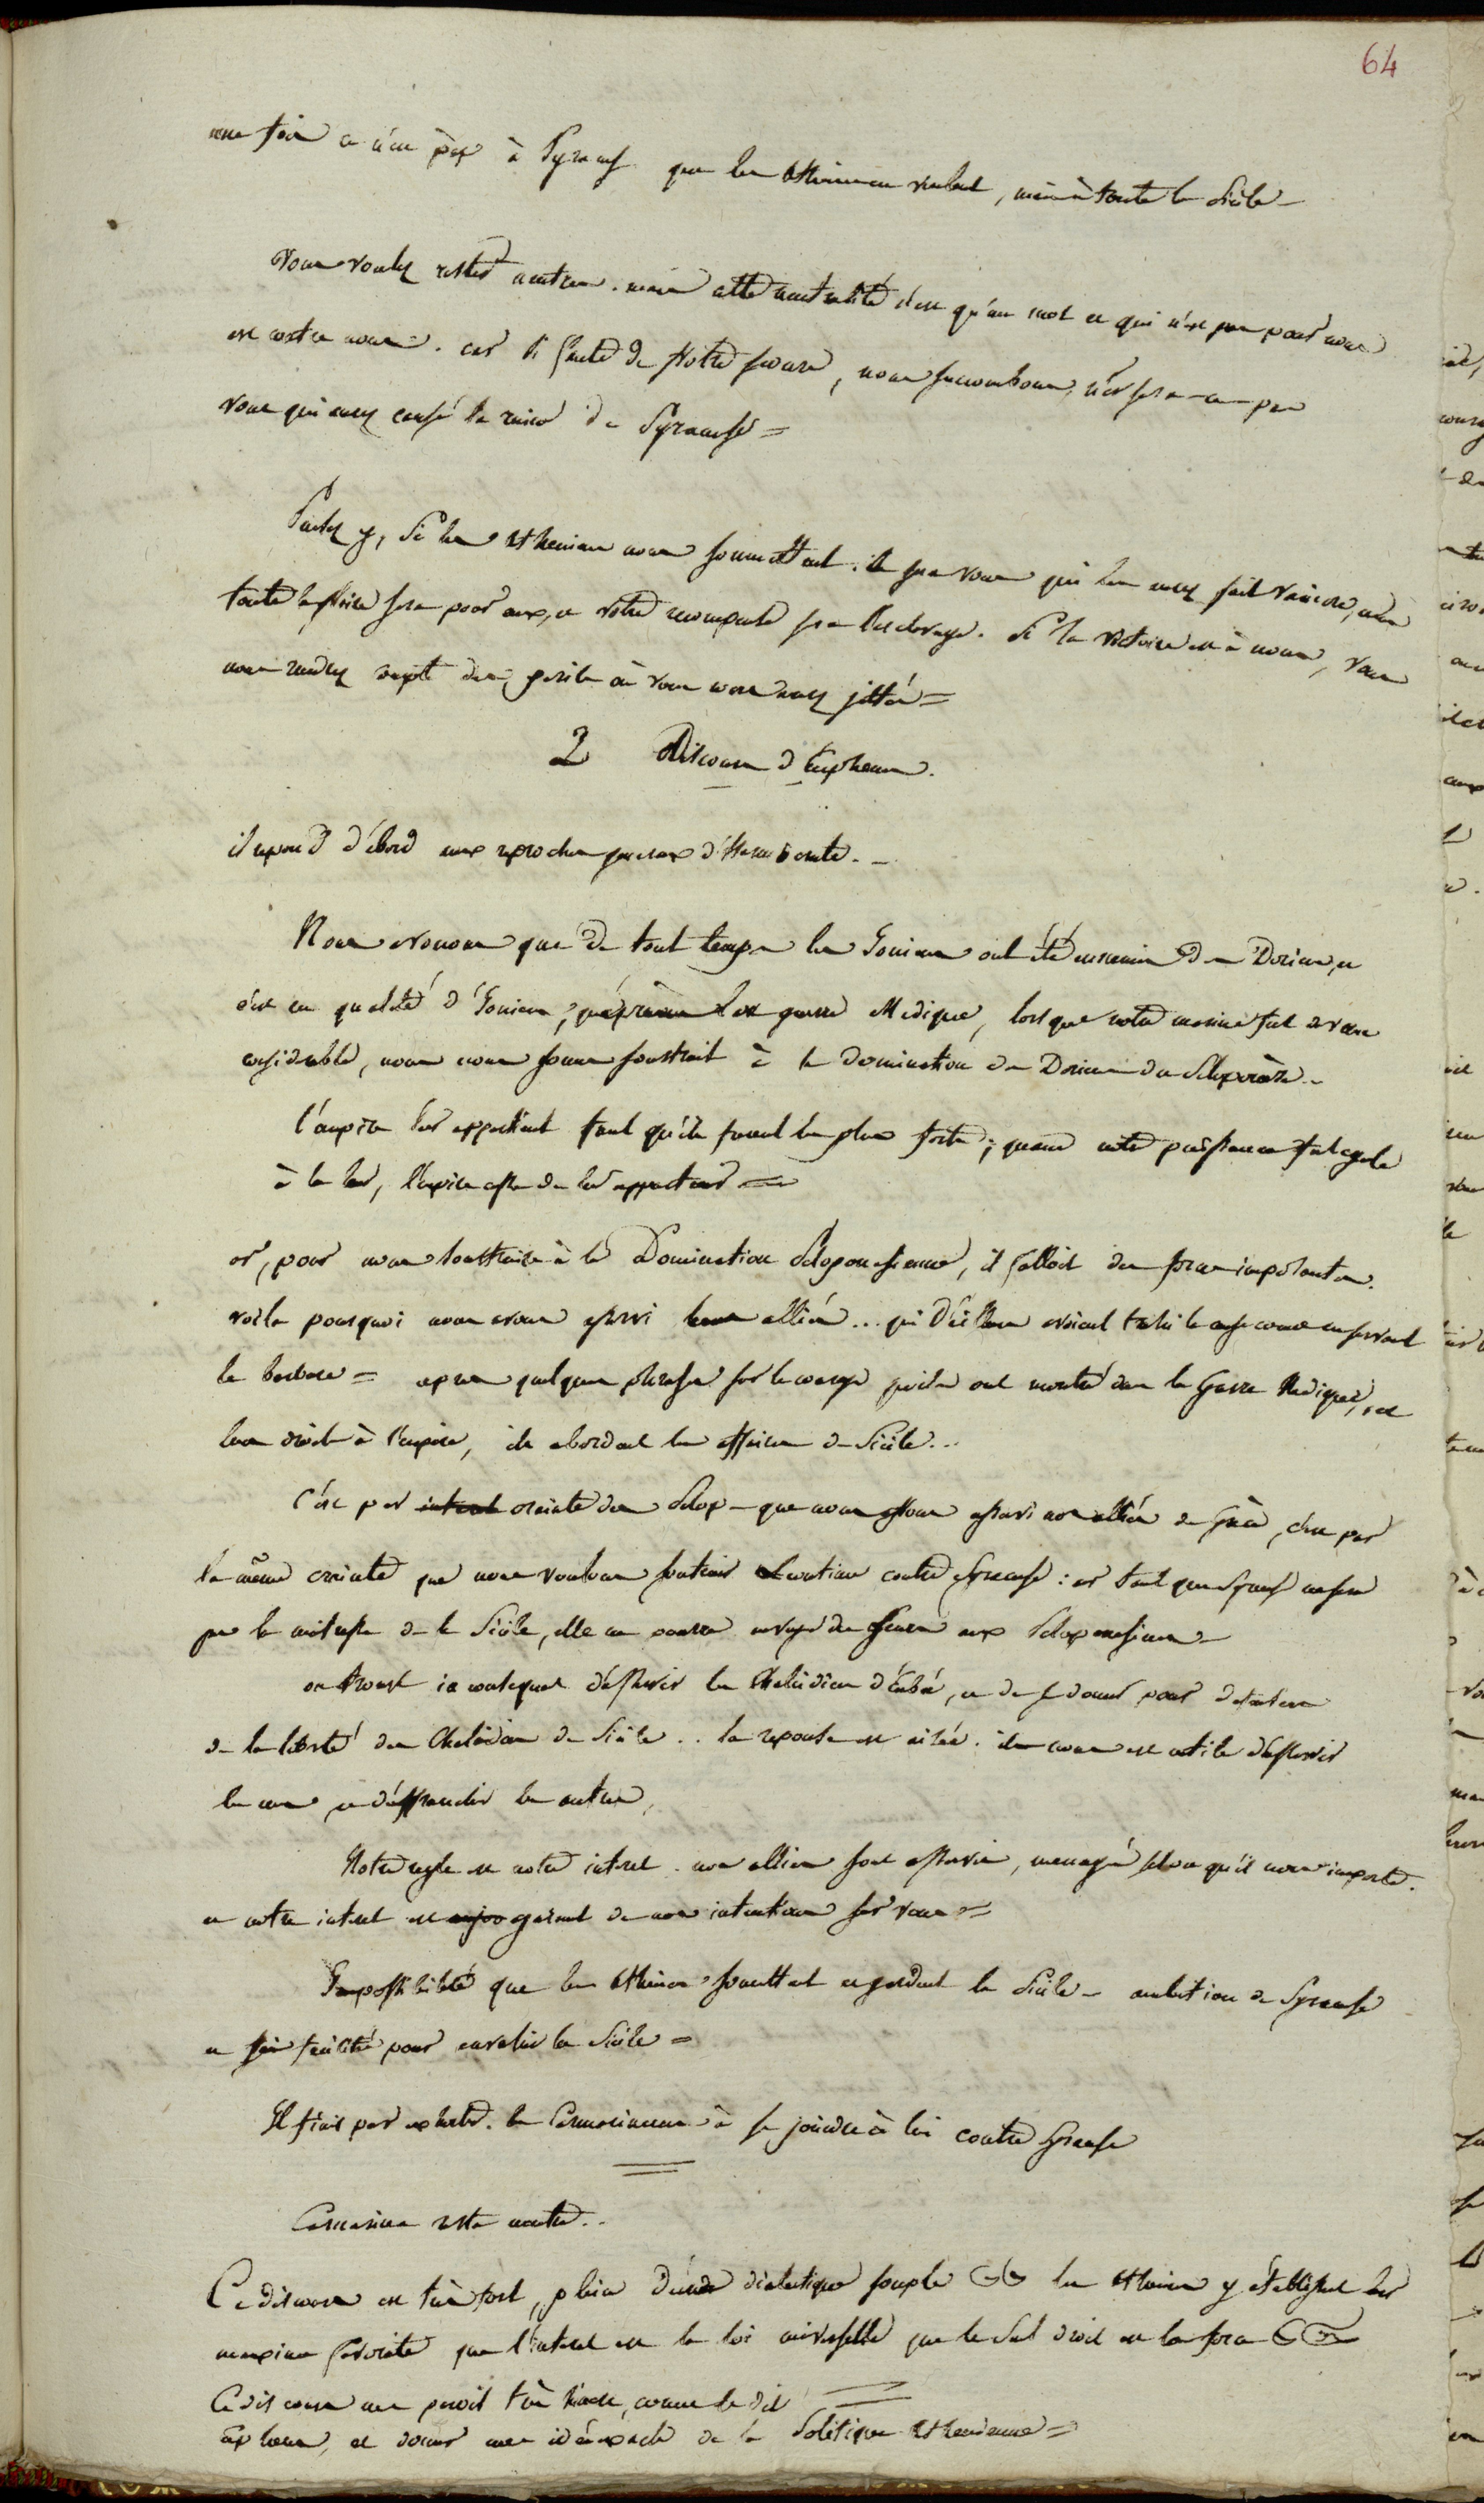 64
une fois ce n'est pas à Syracuse que les Atheniens veulent, mais à toute la Sicile —
Vous voulez rester neutres. mais cette neutralité n'est qu'un mot et qui n'est pas pour nous
est contre nous. car si faute de votre secours, nous succombons, ne sera-ce pas
vous qui aurez causé la ruine de Syracuse =
Pensez y, si les Atheniens nous soumettent. ce sera vous qui les aurez fait vaincre, mais
toute la gloire sera pour eux, et votre recompense sera l'esclavage. si la victoire est à nous, vous
nous rendrez compte des perils où vous nous aurez jettés =
2 Discours d'Eupheme.
il repond d'abord aux reproches generaux d'Hermocrate. —
Nous avouons que de tout temps les Ioniens ont été ennemis des Doriens, et
c'est en qualité d'Ioniens, qu'après la guerre Medique, lorsque notre marine fut devenue
considerable, nous nous sommes soustrait à la domination des Doriens du Peloponèse —
l'empire leur appartint tant qu'ils furent les plus forts; quand notre puissance fut egale
à la leur, l'empire cessa de leur appartenir =
or, pour nous soustraire à la Domination Peloponesienne, il falloit des forces imposantes.
voila pourquoi nous avons asservi leurs alliés... qui d'ailleurs avaient trahi la cause commune en servant
le barbare = apres quelques phrases sur le courage qu'ils ont montré dans la Guerre Medique, et
leurs droits à l'empire, ils abordent les affaires de Sicile...
C'est par crainte des Pelop— que nous avons asservi nos alliés de Grèce, c'est par
la même crainte que nous voulons soutenir Leontium contre Syracuse: car tant que Syracuse ne sera
pas la maitresse de la Sicile, elle ne pourra envoyer des secours aux Peloponesiens —
on trouve inconsequent d'asservir les Chalcidiens d'Eubée, et de se donner pour defenseurs
de la liberté des Chalcidiens de Sicile.. la reponse est aisée. il nous est utile d'asservir
les uns et d'affranchir les autres,
Notre regle est notre interet. nos alliés sont asservis, menagés selon qu'il nous importe.
et notre interet est garant de nos intentions sur vous =
Impossibilité que les Atheniens soumettent et gardent la Sicile — ambition de Syracuse
et sa facilité pour envahir la Sicile =
Il finit par exhorter les Camarineens à se joindre à lui contre Syracuse
Camarine resta neutre..
Ce discours est très fort, plein d'une dialectique souple les Atheniens y établissent leur
maxime favorite que l'interet est la loi universelle que le seul droit est la force
Ce discours me paroit très beau, comme le dit
Eupheme, et donner une idée exacte de la Politique Athenienne =